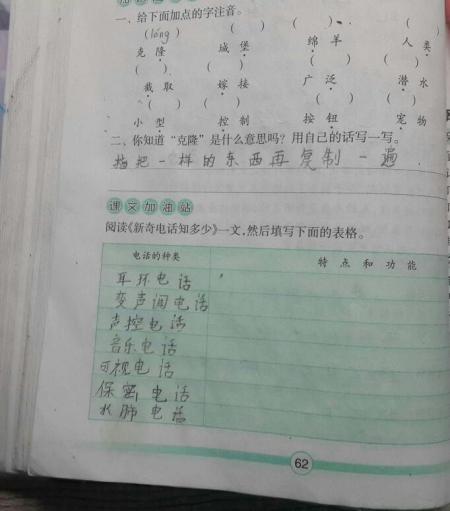 一、给下面加点的字注音。
(lóng) ( ) ( ) ( )
克隆 城堡 绵羊 人类
( ) ( ) ( ) ( )
截取 嫁接 广泛 潜水
( ) ( ) ( ) ( )
小型 控制 按钮 宠物
二、你知道“克隆”是什么意思吗?用自己的话写一写。
指把一样的东西再复制一遍
课文加油站
阅读《新奇电话知多少》一文,然后填写下面的表格。
电话的种类 特点和功能
耳环电话
变声调电话
声控电话
音乐电话
可视电话
保密电话
62